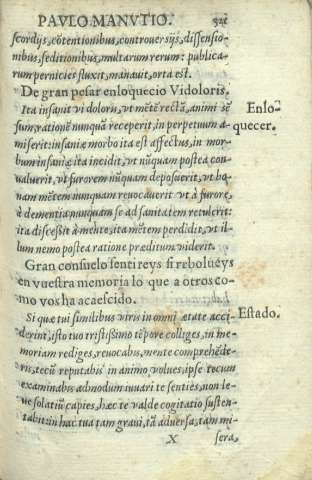 PAVLO MANVTIO. 321
scordijs, cōtentionibus, controuersijs, dissensio-
nibus, seditionibus, multarum rerum: publica-
rum pernicies fluxit, manauit, orta est.
De gran pesar enloquecio Vidoloris.
Ita insanit vi doloris, vt mētē rectā, animi sē
sum, rationē nunquā receperit, in perpetuum a-
miserit: insaniæ morbo ita est affectus, in mor-
bum insaniæ ita incidit, vt nūquam postea con-
ualuerit, vt furorem nunquam deposuerit, vt bo-
nam mētem nunquam reuocauerit vt à furore,
à dementia nunquam se ad sanitatem retulerit:
ita discessit à mente, ita mētem perdidit, vt il-
lum nemo postea ratione præditum viderit.
Enlo-
quecer.
Gran consuelo sentireys si rebolueys
en vuestra memoria lo que a otros co-
mo vos ha acaescido.
Si quæ tui similibus viris in omni ætate acci-
derint, isto tuo tristissimo tēpore colliges, in me-
moriam rediges, reuocabis, mente comprehēde-
ris, tecū reputabis in animo volues, ipse tecum
examinabis admodum iuuari te senties, non le-
ue solatiū capies, hæc te valde cogitatio susten-
tabit: in hac tua tam graui, tā aduersa, tam mi-
Estado.
X sera,